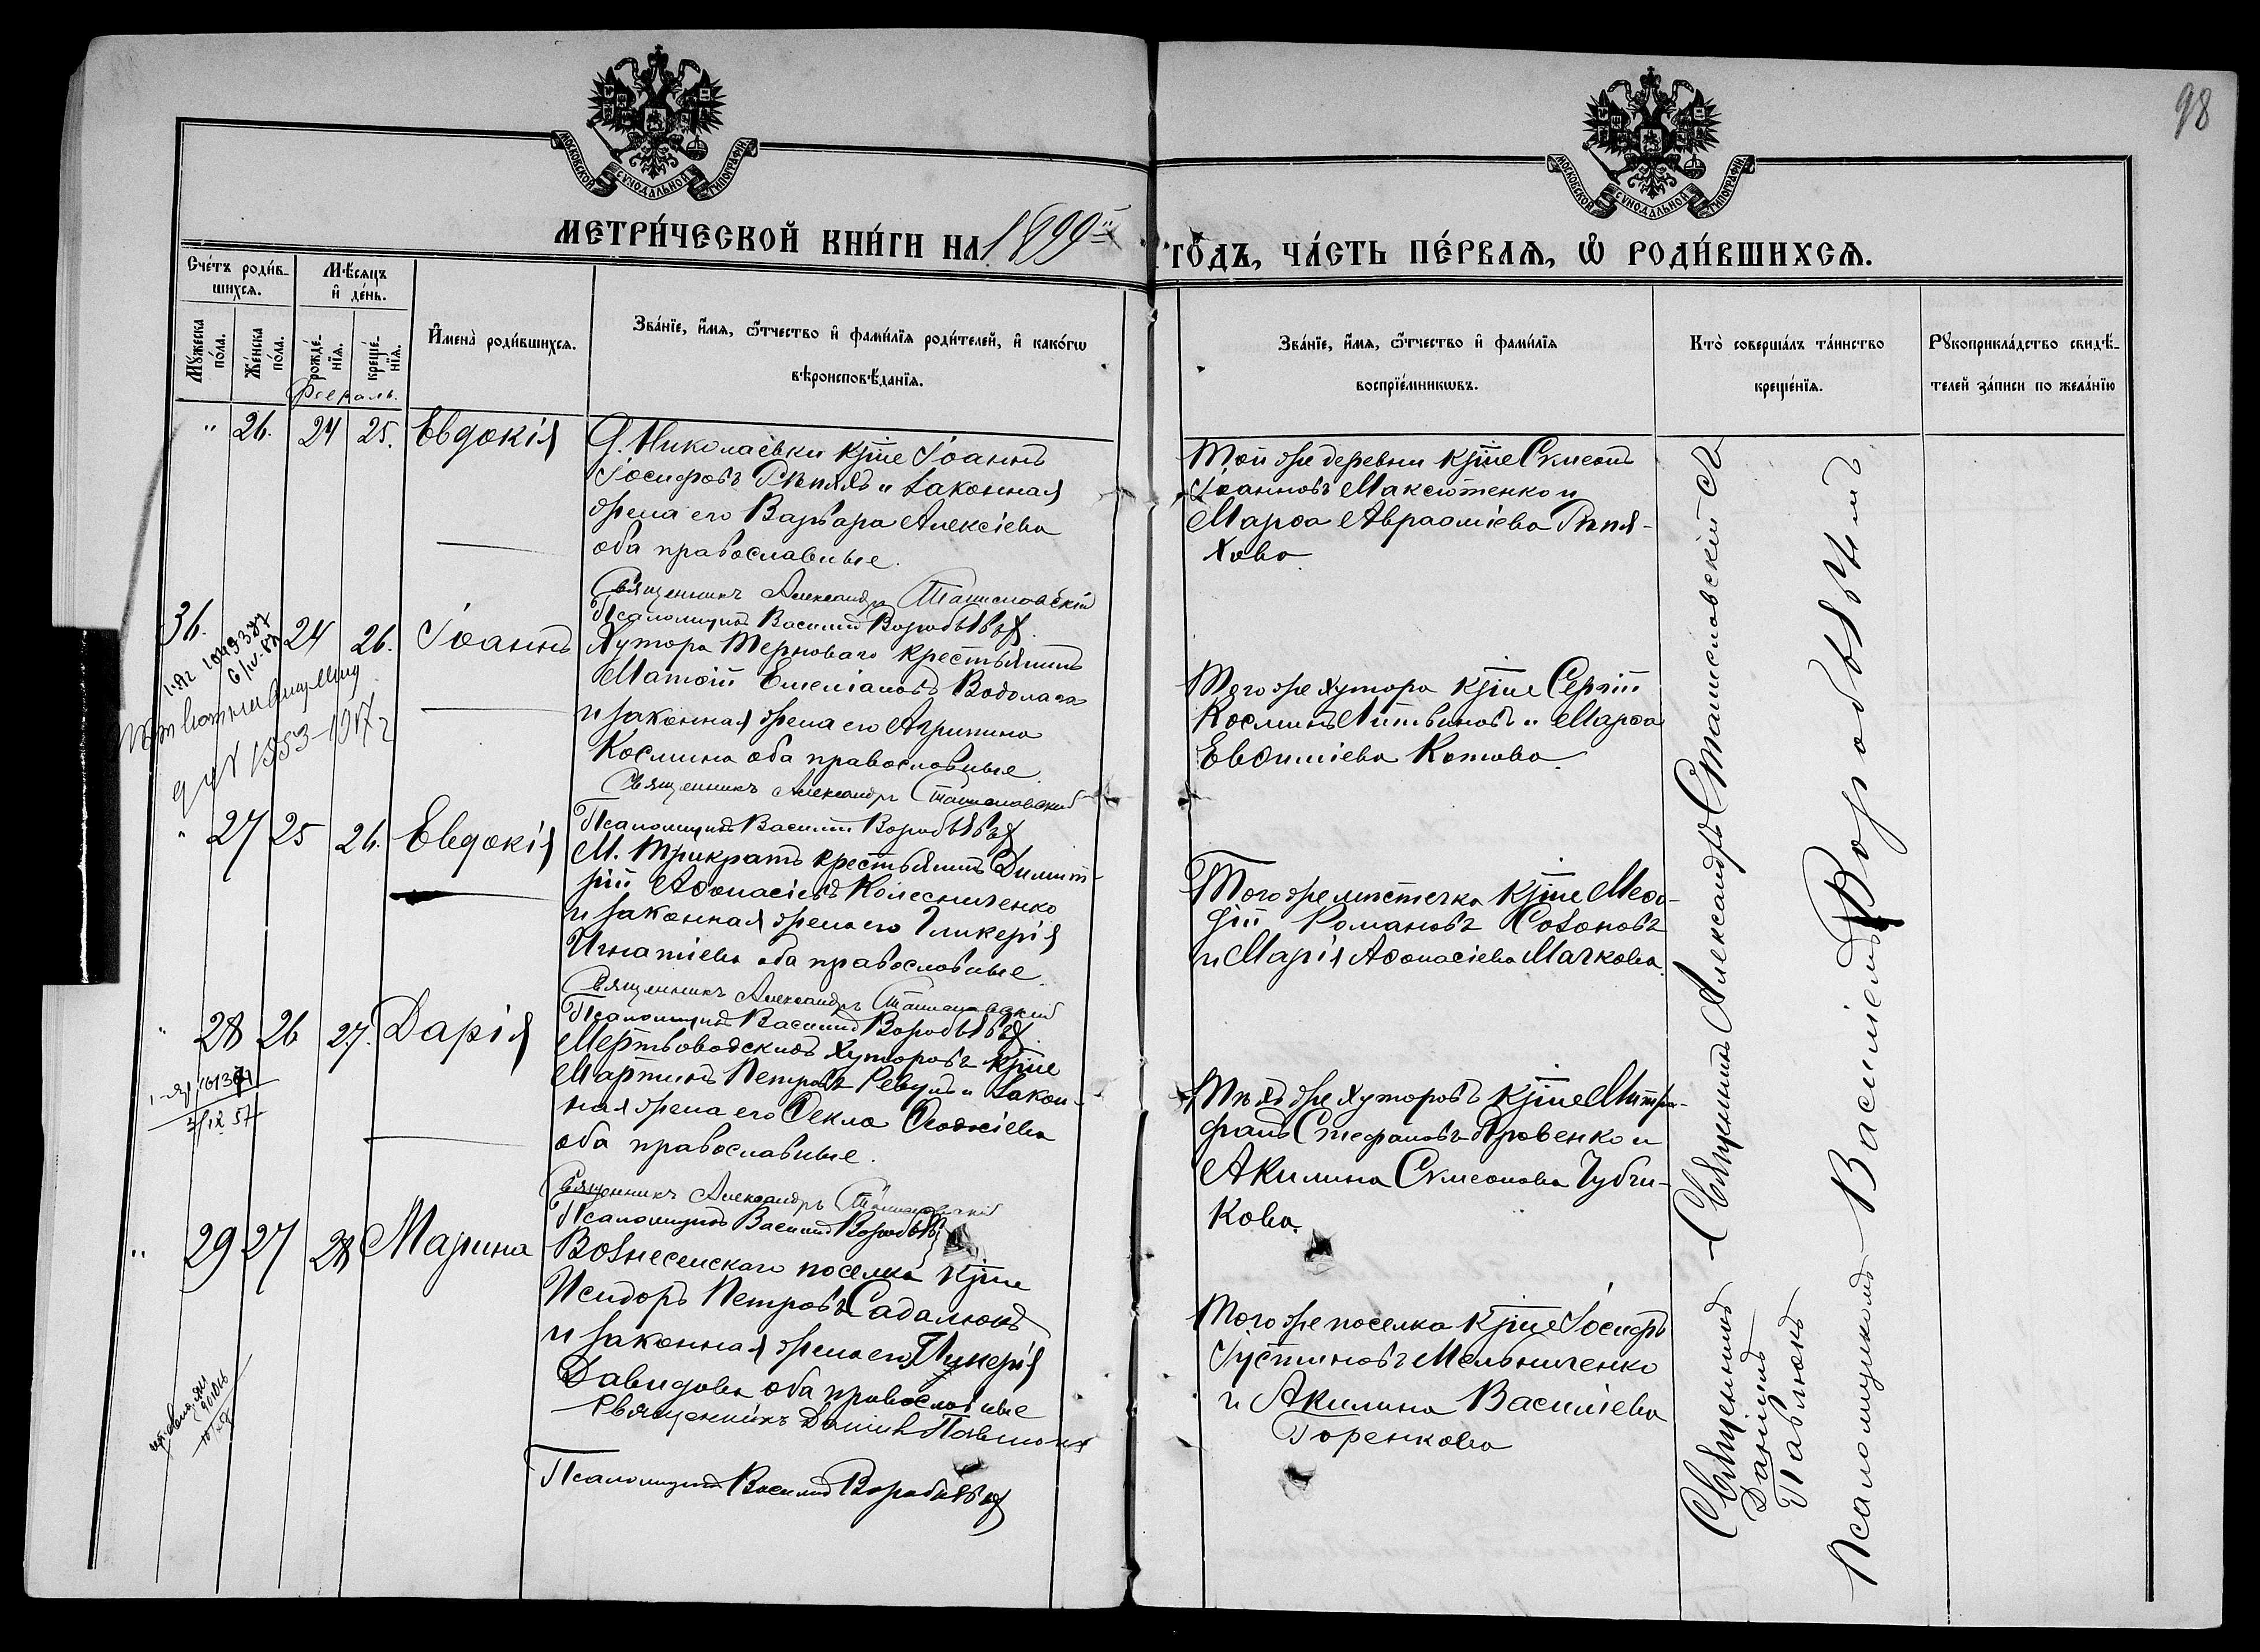 98
МОСКОВСКОЙ СѴНОДАЛЬНОЙ ТИПОГРАФІИ
МОСКОВСКОЙ СѴНОДАЛЬНОЙ ТИПОГРАФІИ
МЕТРИ́ЧЕСКОЙ КНИ́ГИ НА 1899й ГО́ДЪ, ЧА́СТЬ ПЕ́РВАѦ, Ѡ҆ РОДИ́ВШИХСѦ.
Сче́тъ роди́в-
шихсѧ.
Мѣ́сяцъ
и҆ де́нь.
Мꙋ́жеска по́ла.
Же́нска по́ла.
рожде́-
нїѧ.
креще́-
нїѧ.
И҆мена̀ роди́вшихсѧ.
Зва́нїе, и҆́мѧ, ѻ҆́тчество и҆ фами́лїѧ роди́телей, и҆ како́гѡ
вѣроисповѣ́данїѧ.
Зва́нїе, и҆́мѧ, ѻ҆́тчество и҆ фами́лїѧ
воспрїе́мникѡвъ.
Кто̀ соверша́лъ та́инство
креще́нїѧ.
Рꙋкоприкла́дство свидѣ́-
телей за́писи по жела́нїю
Февраль.
" 26. 24 25. Евдокія
Д. Николаевки кр҃не Іоаннъ
Іосифовъ Рѣпяхъ и законная
жена его Варвара Алексіева
оба православные.
Священникъ Александръ Станиславскій
Псаломщикъ Василій Воробьевъ
Той же деревни кр҃не Сѵмеонъ
Іоанновъ Максютенко и
Марѳа Авраамiева Рѣпя-
хова.
36. 24 26. Іоаннъ
Хутора Терноваго крестьянинъ
Матѳій Емеліановъ Водолага
и законная жена его Агрипина
Космина оба православные.
Священникъ Александръ Станиславскій
Псаломщикъ Василій Воробьевъ
Того же хутора кр҃не Сергій
Косминъ Литвиновъ и Марѳа
Евѳиміева Котова.
1953-1917 г
" 27 25 26. Евдокія
М. Трикратъ крестьянинъ Димит-
рій Аѳонасіевъ Колесниченко
и законная жена его Гликерія
Игнатіева оба православные.
Священникъ Александръ Станиславскій
Псаломщикъ Василій Воробьевъ
Того же мѣстечка кр҃не Меѳо-
дій Романовъ Созоновъ
и Марія Аѳонасіева Мачкова.
" 28 26 27. Дарія
Мертвоводскихъ хуторовъ кр҃не
Мартинъ Петровъ Ревунъ и закон-
ная жена его Ѳекла Ѳеодосіева
оба православные.
Священникъ Александръ Станиславскій
Псаломщикъ Василій Воробьевъ
Тѣхъ же хуторовъ кр҃не Митро-
фанъ Стефановъ Яровенко и
Акилина Сѵмеонова Чубчи-
кова.
" 29 27 28 Марина
Вознесенскаго поселка кр҃не
Исидоръ Петровъ Садалюкъ
и законная жена его Гликерія
Давидова оба православные
Священникъ Даніилъ Павлюкъ
Псаломщикъ Василій Воробьевъ
Того же поселка кр҃не Іосифъ
Іустиновъ Мельниченко
и Акилина Василіева
Горенкова
Священникъ Александръ Станиславскій съ
Священникъ
Даніилъ
Павлюкъ
Псаломщикомъ Василіемъ Воробьевымъ